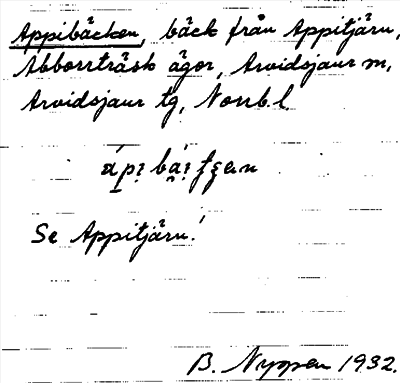 Appibäcken, bäck från Appitjärn,
Abborrträsk ägor, Arvidsjaur sn,
Arvidsjaur tg, Norrb. l.
Se Appitjärn!
B. Nyppen 1932.